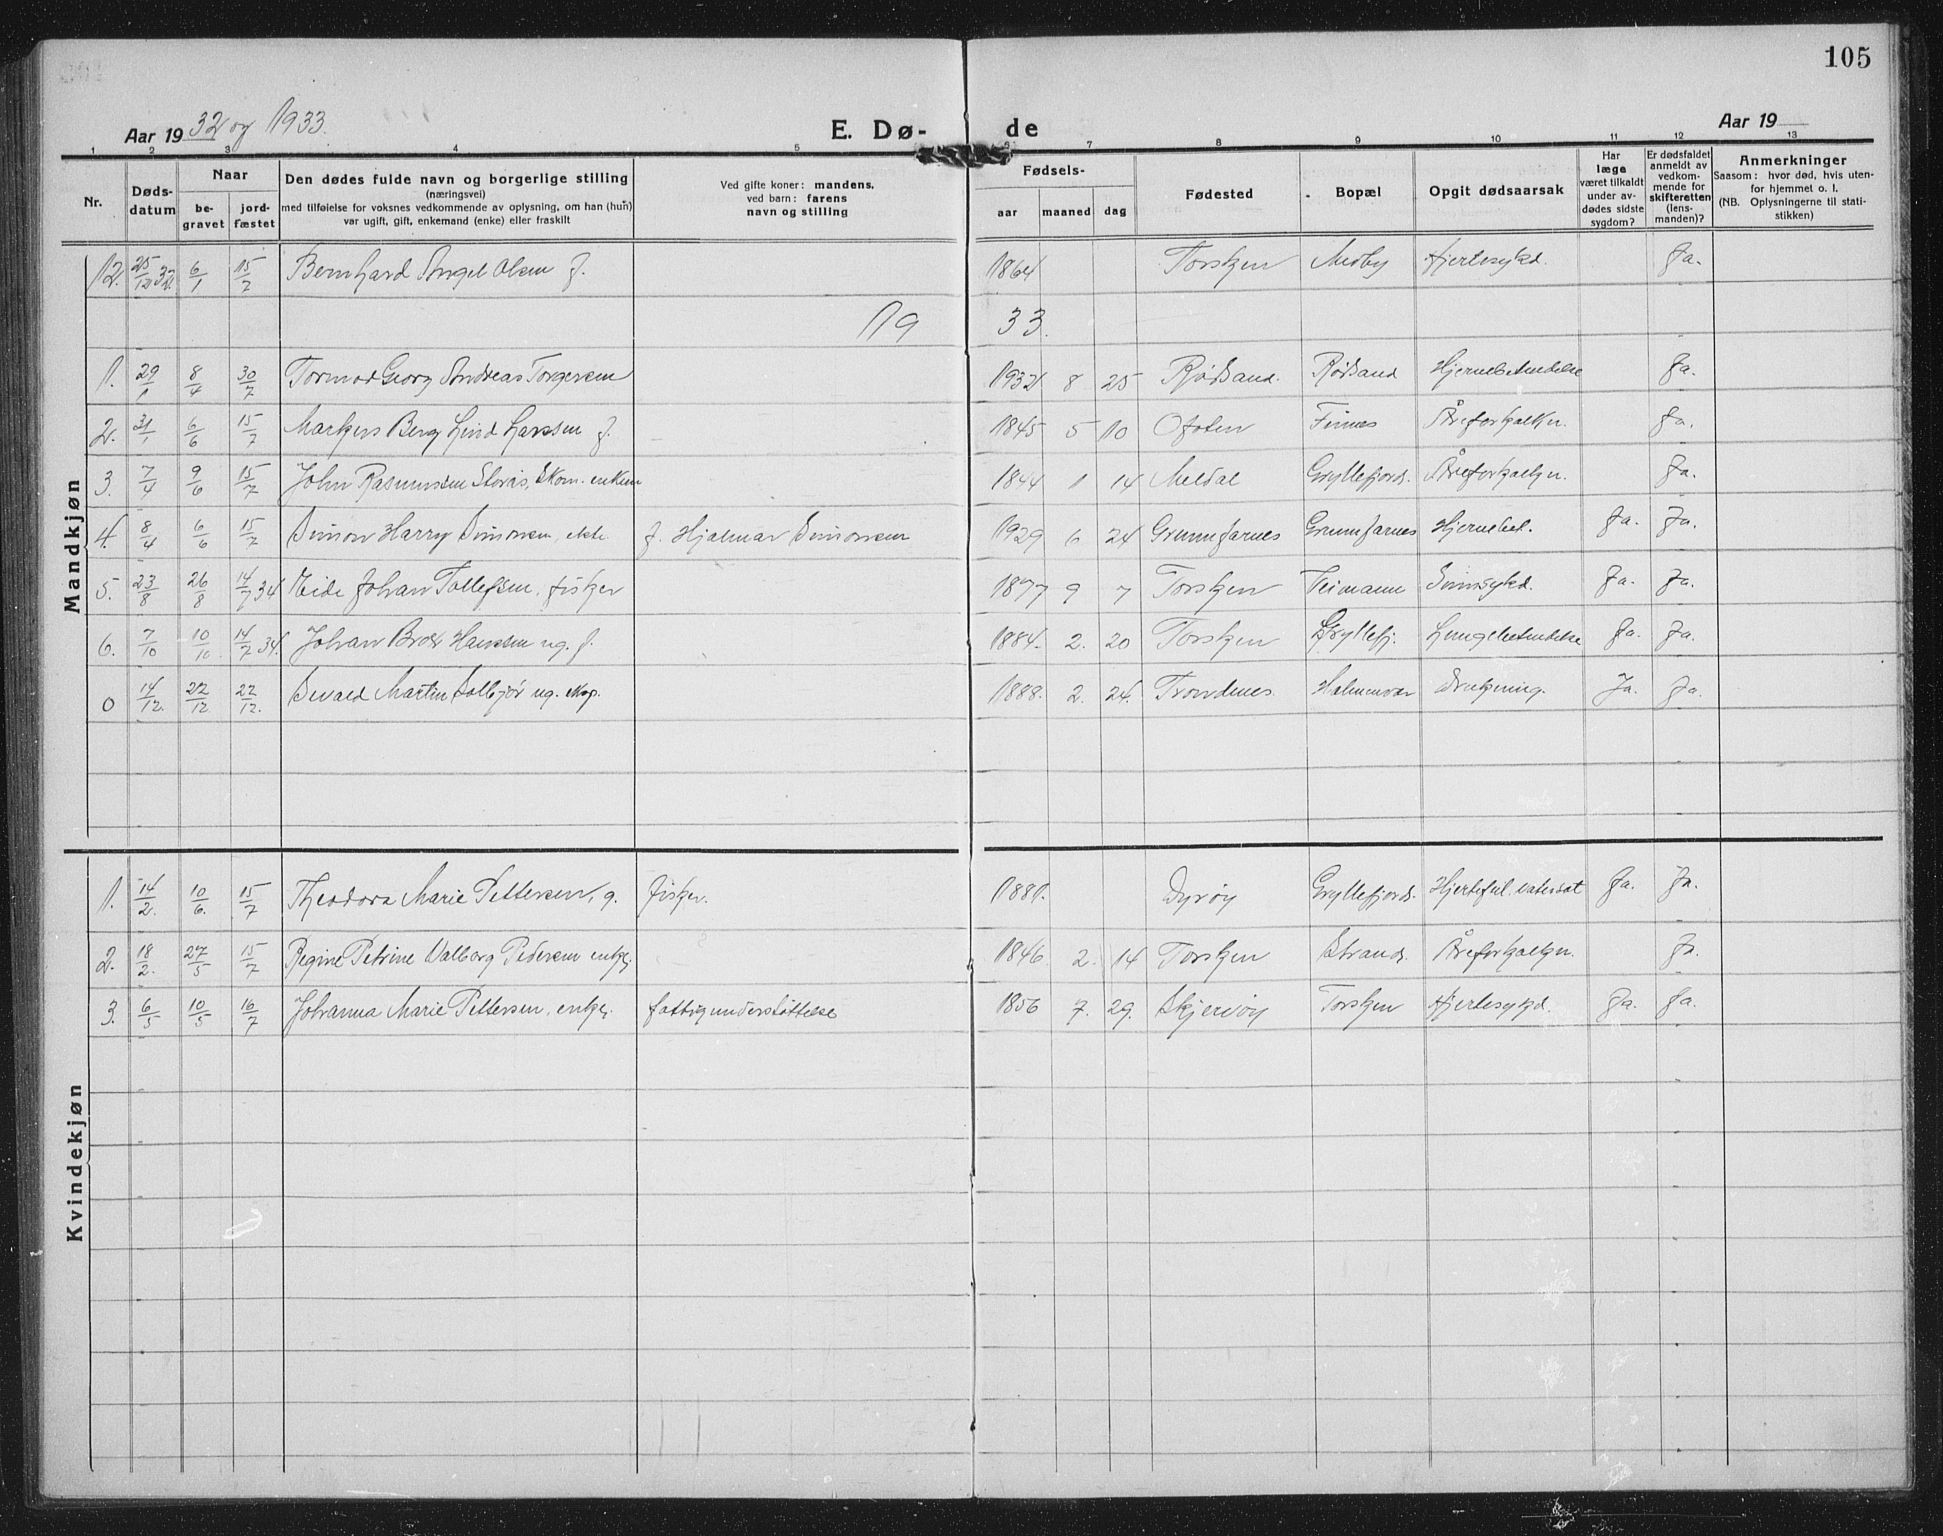 105
Aar 1932 og 1933.
E. Dø- de
Aar 19
1 2 3 4 5 6 7 8 9 10 11 12 13
Nr.
Døds-
datum
Naar
be-
gravet
jord-
fæstet
Den dødes fulde navn og borgerlige stilling
(næringsvei)
med tilføielse for voksnes vedkommende av oplysning, om han (hun)
var ugift, gift, enkemand (enke) eller fraskilt
Ved gifte koner: mandens,
ved barn: farens
navn og stilling
Fødsels-
aar maaned dag
Fødested
Bopæl
Opgit dødsaarsak
Har
læge
været tilkaldt
under av-
dødes sidste
sygdom?
Er dødsfaldet
anmeldt av
vedkom-
mende for
skifteretten
(lens-
manden)?
Anmerkninger
Saasom: hvor død, hvis uten-
for hjemmet o. l.
(NB. Oplysningerne til stati-
stikken)
Mandkjøn
12. 25/12 32. 6/1 15/7 Bernhard Angel Olsen f. 1864 Torsken Medby Hjertesykd. Ja.
19 33.
1. 29/1 8/4 30/7 Tormod Georg Andreas Torgersen 1932 8 25 Rødsand. Rødsand Hjernebetændelse Ja.
2. 31/1 6/6 15/7 Markus Berg Lind Larssen f. 1845 5 10 Ofoten Finnes Åreforkalkn. Ja.
3. 7/4 9/6 15/7 John Rasmussen Storås, skom. enkem 1844 1 14 Meldal Gryllefjord. Åreforkalkn. Ja.
4. 8/4 6/6 15/7 Simon Harry Simonsen, ekte f. Hjalmar Simonsen 1929 6 24 Grunnfarnes Grunnfarnes Hjernebet. Ja. Ja.
5. 23/8 26/8 14/7 34 Eide Johan Tollefsen, fisker 1877 9 7 Torsken Veimann Sinnsykd. Ja. Ja.
6. 7/10 10/10 14/7 34. Johan Brox Hanssen ug. f. 1884. 2. 20 Torsken Gryllefj. Lungebetændelse Ja. Ja.
0 14/12. 22/12 22/12. Sevald Martin Solbjør ug. eksp. 1888. 2. 24. Trondenes Holmenvær Drukning. Ja. Ja.
Kvindekjøn
1. 14/2. 10/6. 15/7 Theodora Marie Pettersen, g. fisker. 1881. Dyrøy Gryllefjord. Hjertefeil. vatersot Ja. Ja.
2. 18/2. 27/5 15/7 Regine Petrine Valborg Pedersen enke. 1846 2. 14 Torsken Strand. Åreforkalkn. Ja.
3. 6/5 10/5 16/7 Johanna Marie Pettersen, enke. fattigunderstøttelse 1856 7. 29. Skjervøy Torsken Hjertesykd. Ja. Ja.